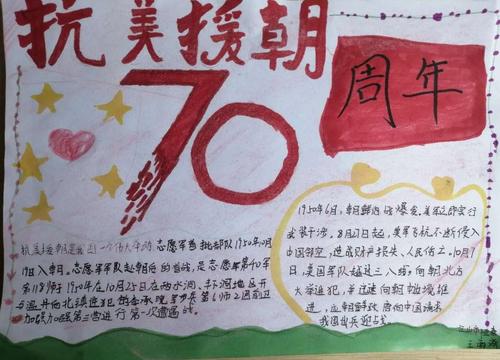 抗美援朝
70
周年
抗美援朝是 一个伟大 志愿军首批部队1950年10月
19日入朝。志愿军军队赴朝后的首战,是志愿军第40军
第118师1950年在10月25日在两水洞、丰下洞地区
与温井向北镇进犯的 第6师2团前卫
加强第三营进行第一次遭遇战。
1950年6月,朝鲜内战爆发,美军立即实行
武装干涉。8月27日起,美军飞机不断侵入
中国领空,造成财产损失、人民伤亡。10月7
日,美国军队越过三八线,向朝北方
大举进犯,并迅速向朝中边境推
进,应朝鲜政府向中国请求
我国出兵迎战。